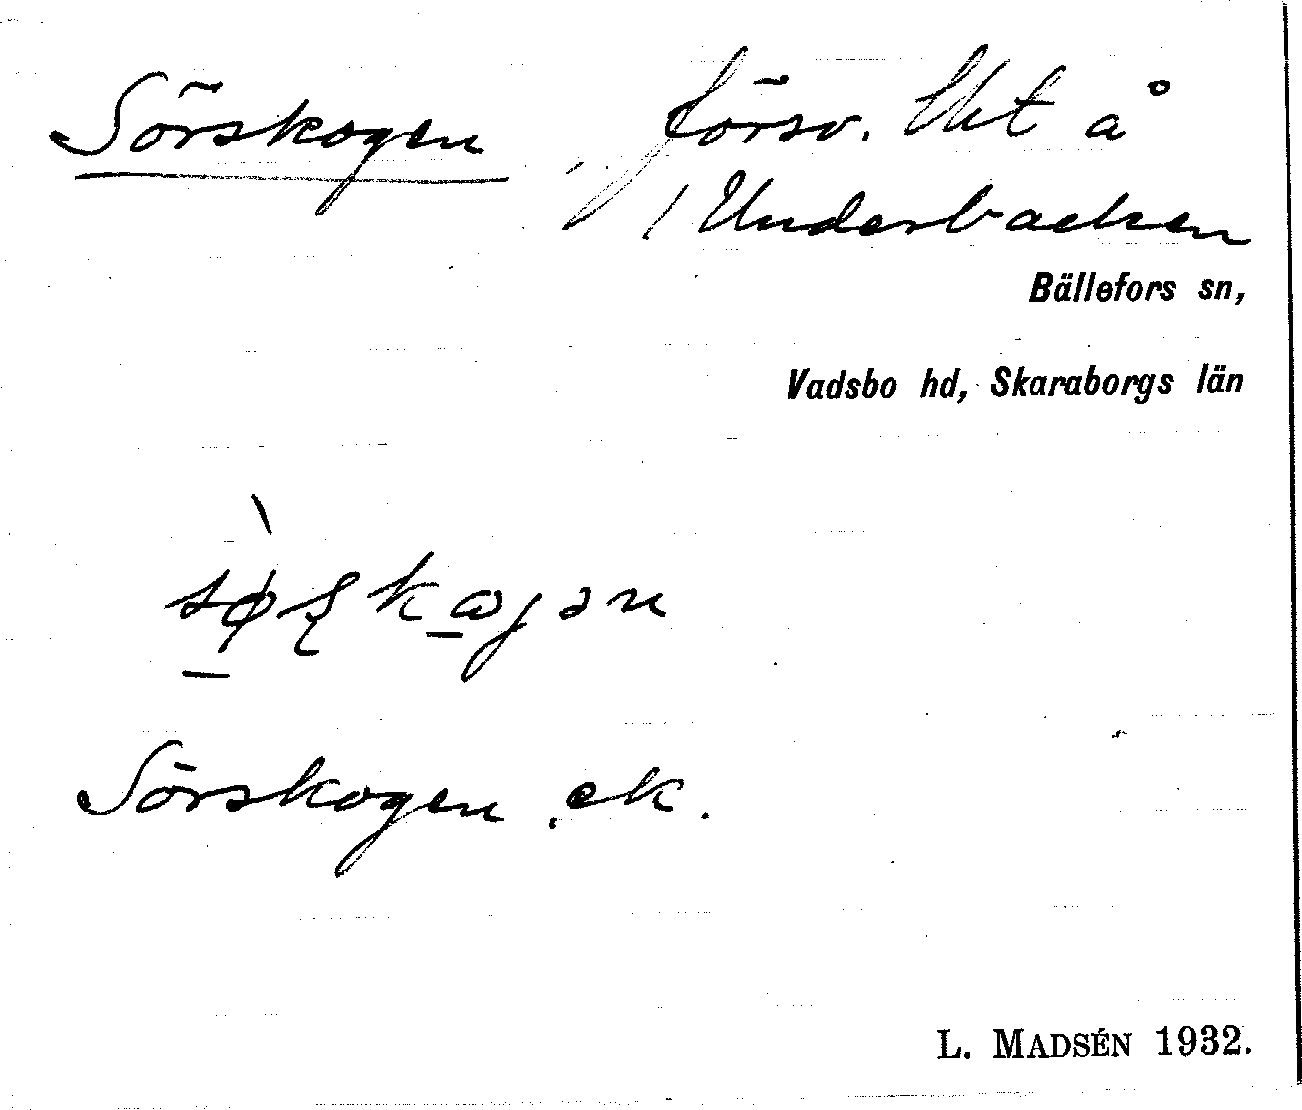 Sörskogen försv. lht å
/ Underbacken
Bällefors sn,
Vadsbo hd, Skaraborgs län
Sörskogen ek.
L. MADSÉN 1932.